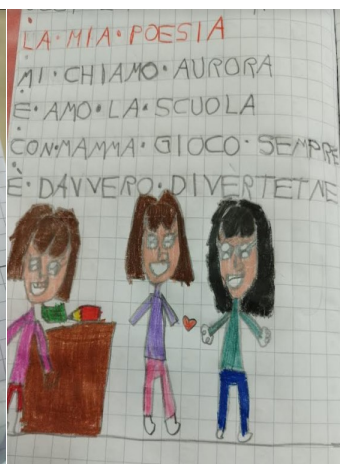 LA•MIA•POESIA
MI•CHIAMO•AURORA
E•AMO•LA•SCUOLA
CON•MAMMA•GIOCO•SEMPRE
È•DAVVERO•DIVERTETNE